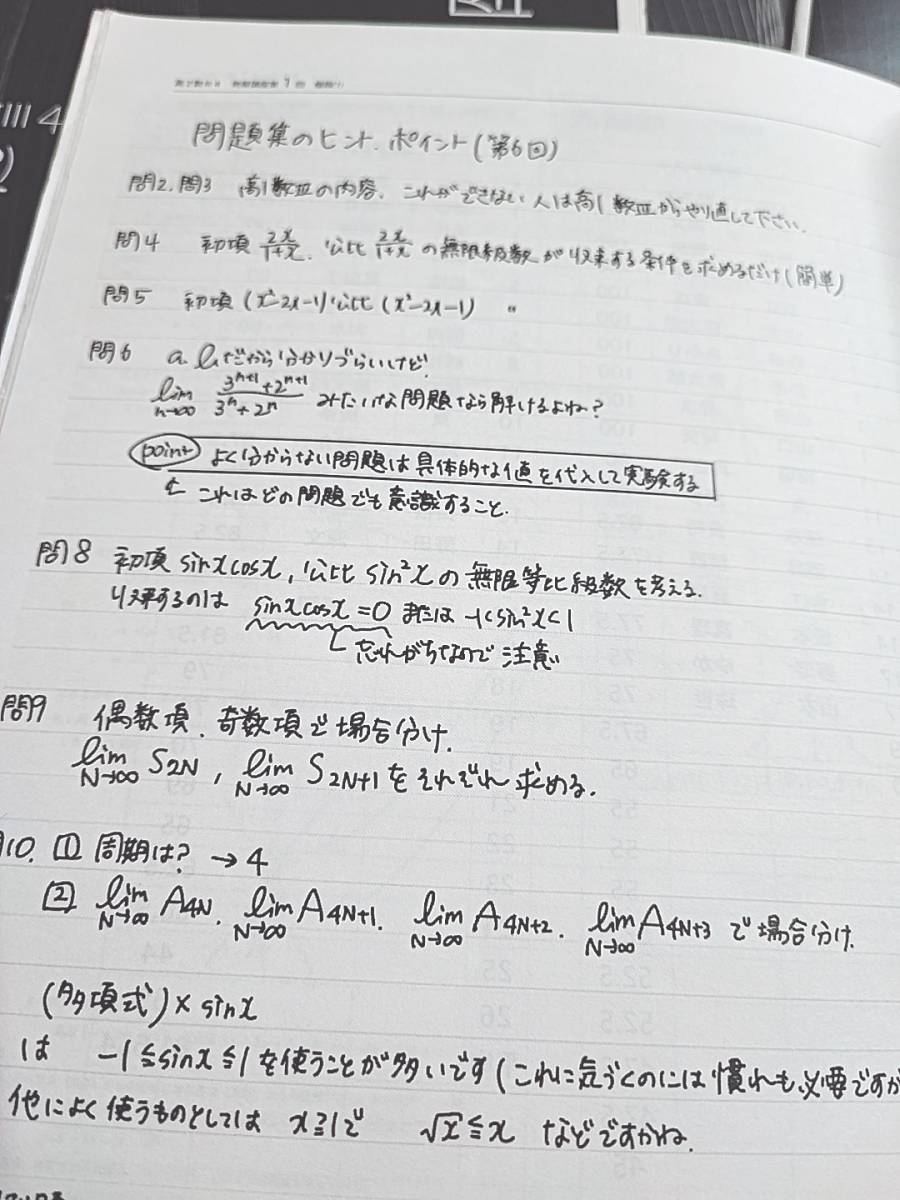 問題集のヒント、ポイント(第6回)
問2.問3 高1数Ⅲの内容、これができない人は高1数Ⅲからやり直して下さい。
問4 初項 2x/1+x、公比 2x/1+x の無限級数が収束する条件を求めるだけ(簡単)
問5 初項(x²-2x-1)公比(x²-2x-1) 〃
問6 a.bだから分かりづらいけど
lim n→∞ 3ⁿ⁺¹+2ⁿ⁺¹/3ⁿ+2ⁿ みたいな問題なら解けるよね?
point よく分からない問題は具体的な値を代入して実験する
← これはどの問題でも意識すること.
問8 初項 sinxcosx, 公比 sin²xの無限等比級数を考える.
収束するのは sinxcosx=0 または -1<sin²x<1
忘れがちなので注意
問9 偶数項、奇数項で場合分け.
lim N→∞ S2N , lim N→∞ S2N+1 をそれぞれ求める.
10. 1 周期は? →4
2 lim N→∞ A4N. lim N→∞ A4N+1. lim N→∞ A4N+2. lim N→∞ A4N+3 で場合分け.
(多項式)×sinx
は -1≦sinx≦1を使うことが多いです(これに気づくのには慣れも必要ですが
他によく使うものとしては x≧1で √x≦x などですかね.